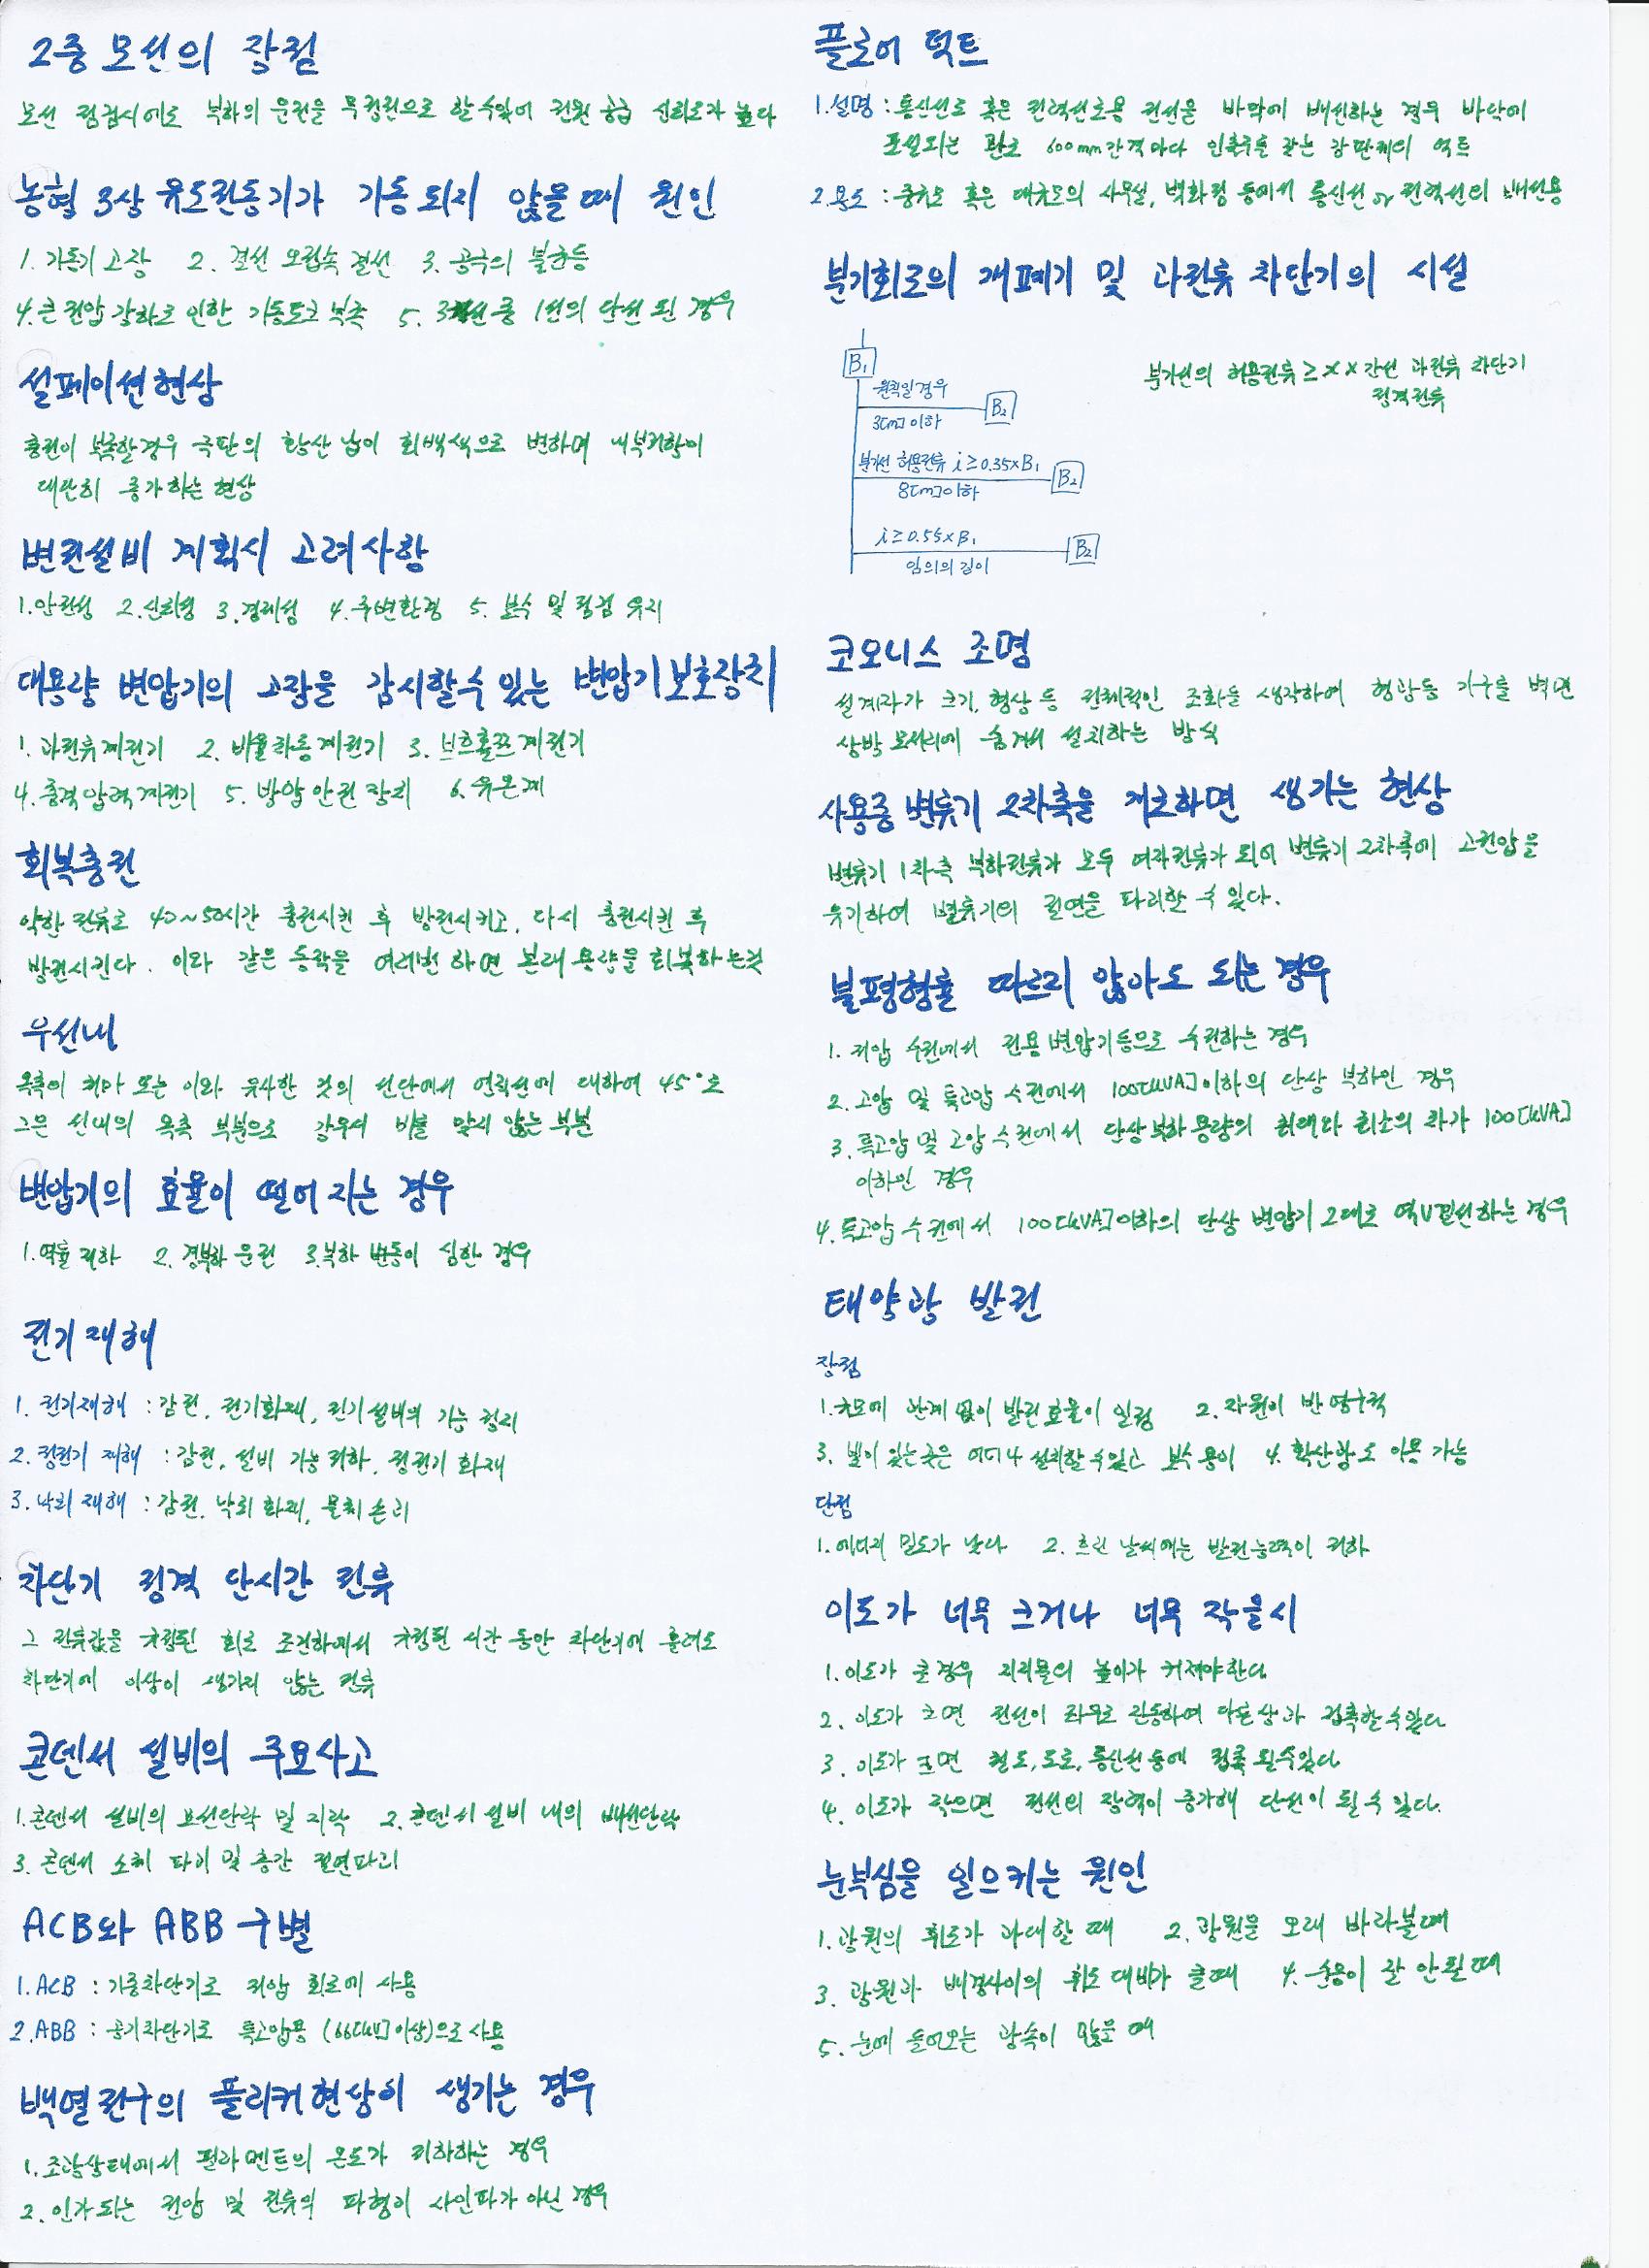 2중 모선의 장점
모선 점검시에도 부하의 운전을 무정전으로 할 수 있어 전원 공급 신뢰도가 높다
농형 3상 유도전동기가 기동되지 않을 때 원인
1. 기동기 고장 2. 결선 오접속 결선 3. 공극의 불균등
4. 큰 전압 강하로 인한 기동토크 부족 5. 3선 중 1선의 단선 된 경우
설페이션현상
충전이 부족할경우 극판의 황산 납이 회백색으로 변하며 내부저항이
대단히 증가하는 현상
변전설비 계획시 고려사항
1.안전성 2.신뢰성 3.경제성 4.주변환경 5. 보수 및 점검 유지
대용량 변압기의 고장을 감시할수 있는 변압기보호장치
1. 과전류계전기 2. 비율차동계전기 3. 브흐홀쯔계전기
4. 충격압력계전기 5. 방압안전장치 6. 유온계
회복충전
약한 전류로 40~50시간 충전시킨 후 방전시키고, 다시 충전시킨 후
방전시킨다. 이와 같은 동작을 여러번 하면 본래 용량을 회복하는것
우선내
옥측의 처마 또는 이와 유사한 것의 선단에서 연직선에 대하여 45°로
그은 선내의 옥측 부분으로 강우시 비를 맞지 않는 부분
변압기의 효율이 떨어지는 경우
1.역률 저하 2. 경부하 운전 3.부하 변동이 심한 경우
전기재해
1. 전기재해 : 감전, 전기화재, 전기설비의 기능 정지
2. 정전기 재해 : 감전, 설비 기능저하, 정전기 화재
3. 낙뢰 재해 : 감전, 낙뢰 화재, 물체 손괴
차단기 정격 단시간 전류
그 전류값을 규정된 회로 조건하에서 규정된 시간 동안 차단기에 흘려도
차단기에 이상이 생기지 않는 전류
콘덴서 설비의 주요사고
1.콘덴서 설비의 모선단락 및 지락 2.콘덴서 설비 내의 배선단락
3. 콘덴서 소체 파괴 및 층간 절연파괴
ACB와 ABB 구별
1.ACB : 기중차단기로 저압 회로에 사용
2.ABB : 공기차단기로 특고압용 (66[kV]이상)으로 사용
백열전구의 플리커현상이 생기는 경우
1.조광상태에서 필라멘트의 온도가 저하하는 경우
2.인가되는 전압 및 전류의 파형이 사인파가 아닌 경우
플로어 덕트
1.설명 : 통신선로 혹은 전력선로용 전선을 바닥에 배선하는 경우 바닥에
포설되는 관로 600mm간격마다 인출구를 갖는 강판제의 덕트
2.용도 : 중규모 혹은 대규모의 사무실, 백화점 등에서 통신선 or 전력선의 배선용
분기회로의 개폐기 및 과전류 차단기의 시설
B₁
원칙일경우
B₂
3[m]이하
분기선의 허용전류 ≥ x × 간선 과전류 차단기
정격전류
분기선 허용전류 i≥0.35×B₁
B₂
8[m]이하
i≥0.55×B₁
B₂
임의의 길이
코오니스 조명
설계자가 크기, 형상 등 전체적인 조화를 생각하여 형광등 기구를 벽면
상방 모서리에 숨겨서 설치하는 방식
사용중 변류기 2차측을 개로하면 생기는 현상
변류기 1차측 부하전류가 모두 여자전류가 되어 변류기 2차측에 고전압을
유기하여 변류기의 절연을 파괴할 수 있다.
불평형률 따르지 않아도 되는 경우
1. 저압 수전에서 전용 변압기등으로 수전하는 경우
2. 고압 및 특고압 수전에서 100[kVA]이하의 단상 부하인 경우
3. 특고압 및 고압 수전에서 단상부하용량의 최대와 최소의 차가 100[kVA]
이하인 경우
4. 특고압 수전에서 100[kVA]이하의 단상 변압기 2대로 역V결선하는 경우
태양광 발전
장점
1.규모에 관계 없이 발전효율이 일정 2. 자원이 반 영구적
3. 빛이 있는곳은 어디나 설치할수있고 보수 용이 4. 확산광도 이용 가능
단점
1.에너지 밀도가 낮다 2. 흐린 날씨에는 발전능력이 저하
이도가 너무 크거나 너무 작을시
1.이도가 클경우 지지물의 높이가 커져야한다
2. 이도가 크면 전선이 좌우로 진동하여 다른상과 접촉할수있다
3. 이도가 크면 철도,도로,통신선 등에 접촉 될수있다
4. 이도가 작으면 전선의 장력이 증가해 단선이 될 수 있다.
눈부심을 일으키는 원인
1.광원의 휘도가 과대할 때 2.광원을 오래 바라볼때
3. 광원과 배경사이의 휘도 대비가 클때 4. 순응이 잘 안될때
5. 눈에 들어오는 광속이 많을 때